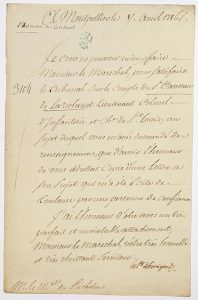 A Montpellier le 5 avril 1786
3104
Je crois ne pouvoir mieux faire
Monsieur le Marechal pour satisfaire
le tribunal sur le compte du Sr.
Lieutenant Colonel
d'Infanterie et Chr. de St. Louis, au
sujet duquel vous m'avés demandé des
renseignemens, que d'avoir l'honneur
de vous adresser Copie d'une lettre a
son sujet qui m'a été Ecrite de
Toulouse par une personne de confiance
J'ai l'honneur d'être avec un tres
parfait et inviolable attachement,
Monsieur le Marechal, votre tres humble
et tres obeissant Serviteur
Mr. le Mal. de Richelieu